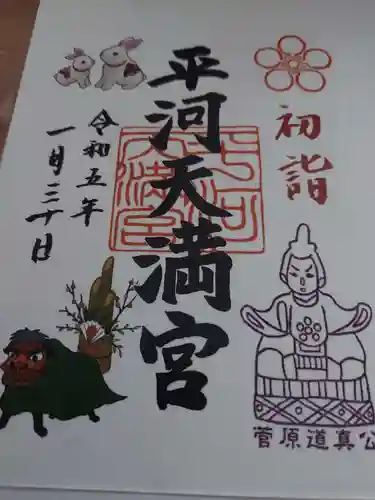 初詣
平河天満宮
令和五年
一月三十日
平河
天満宮
菅原道真公